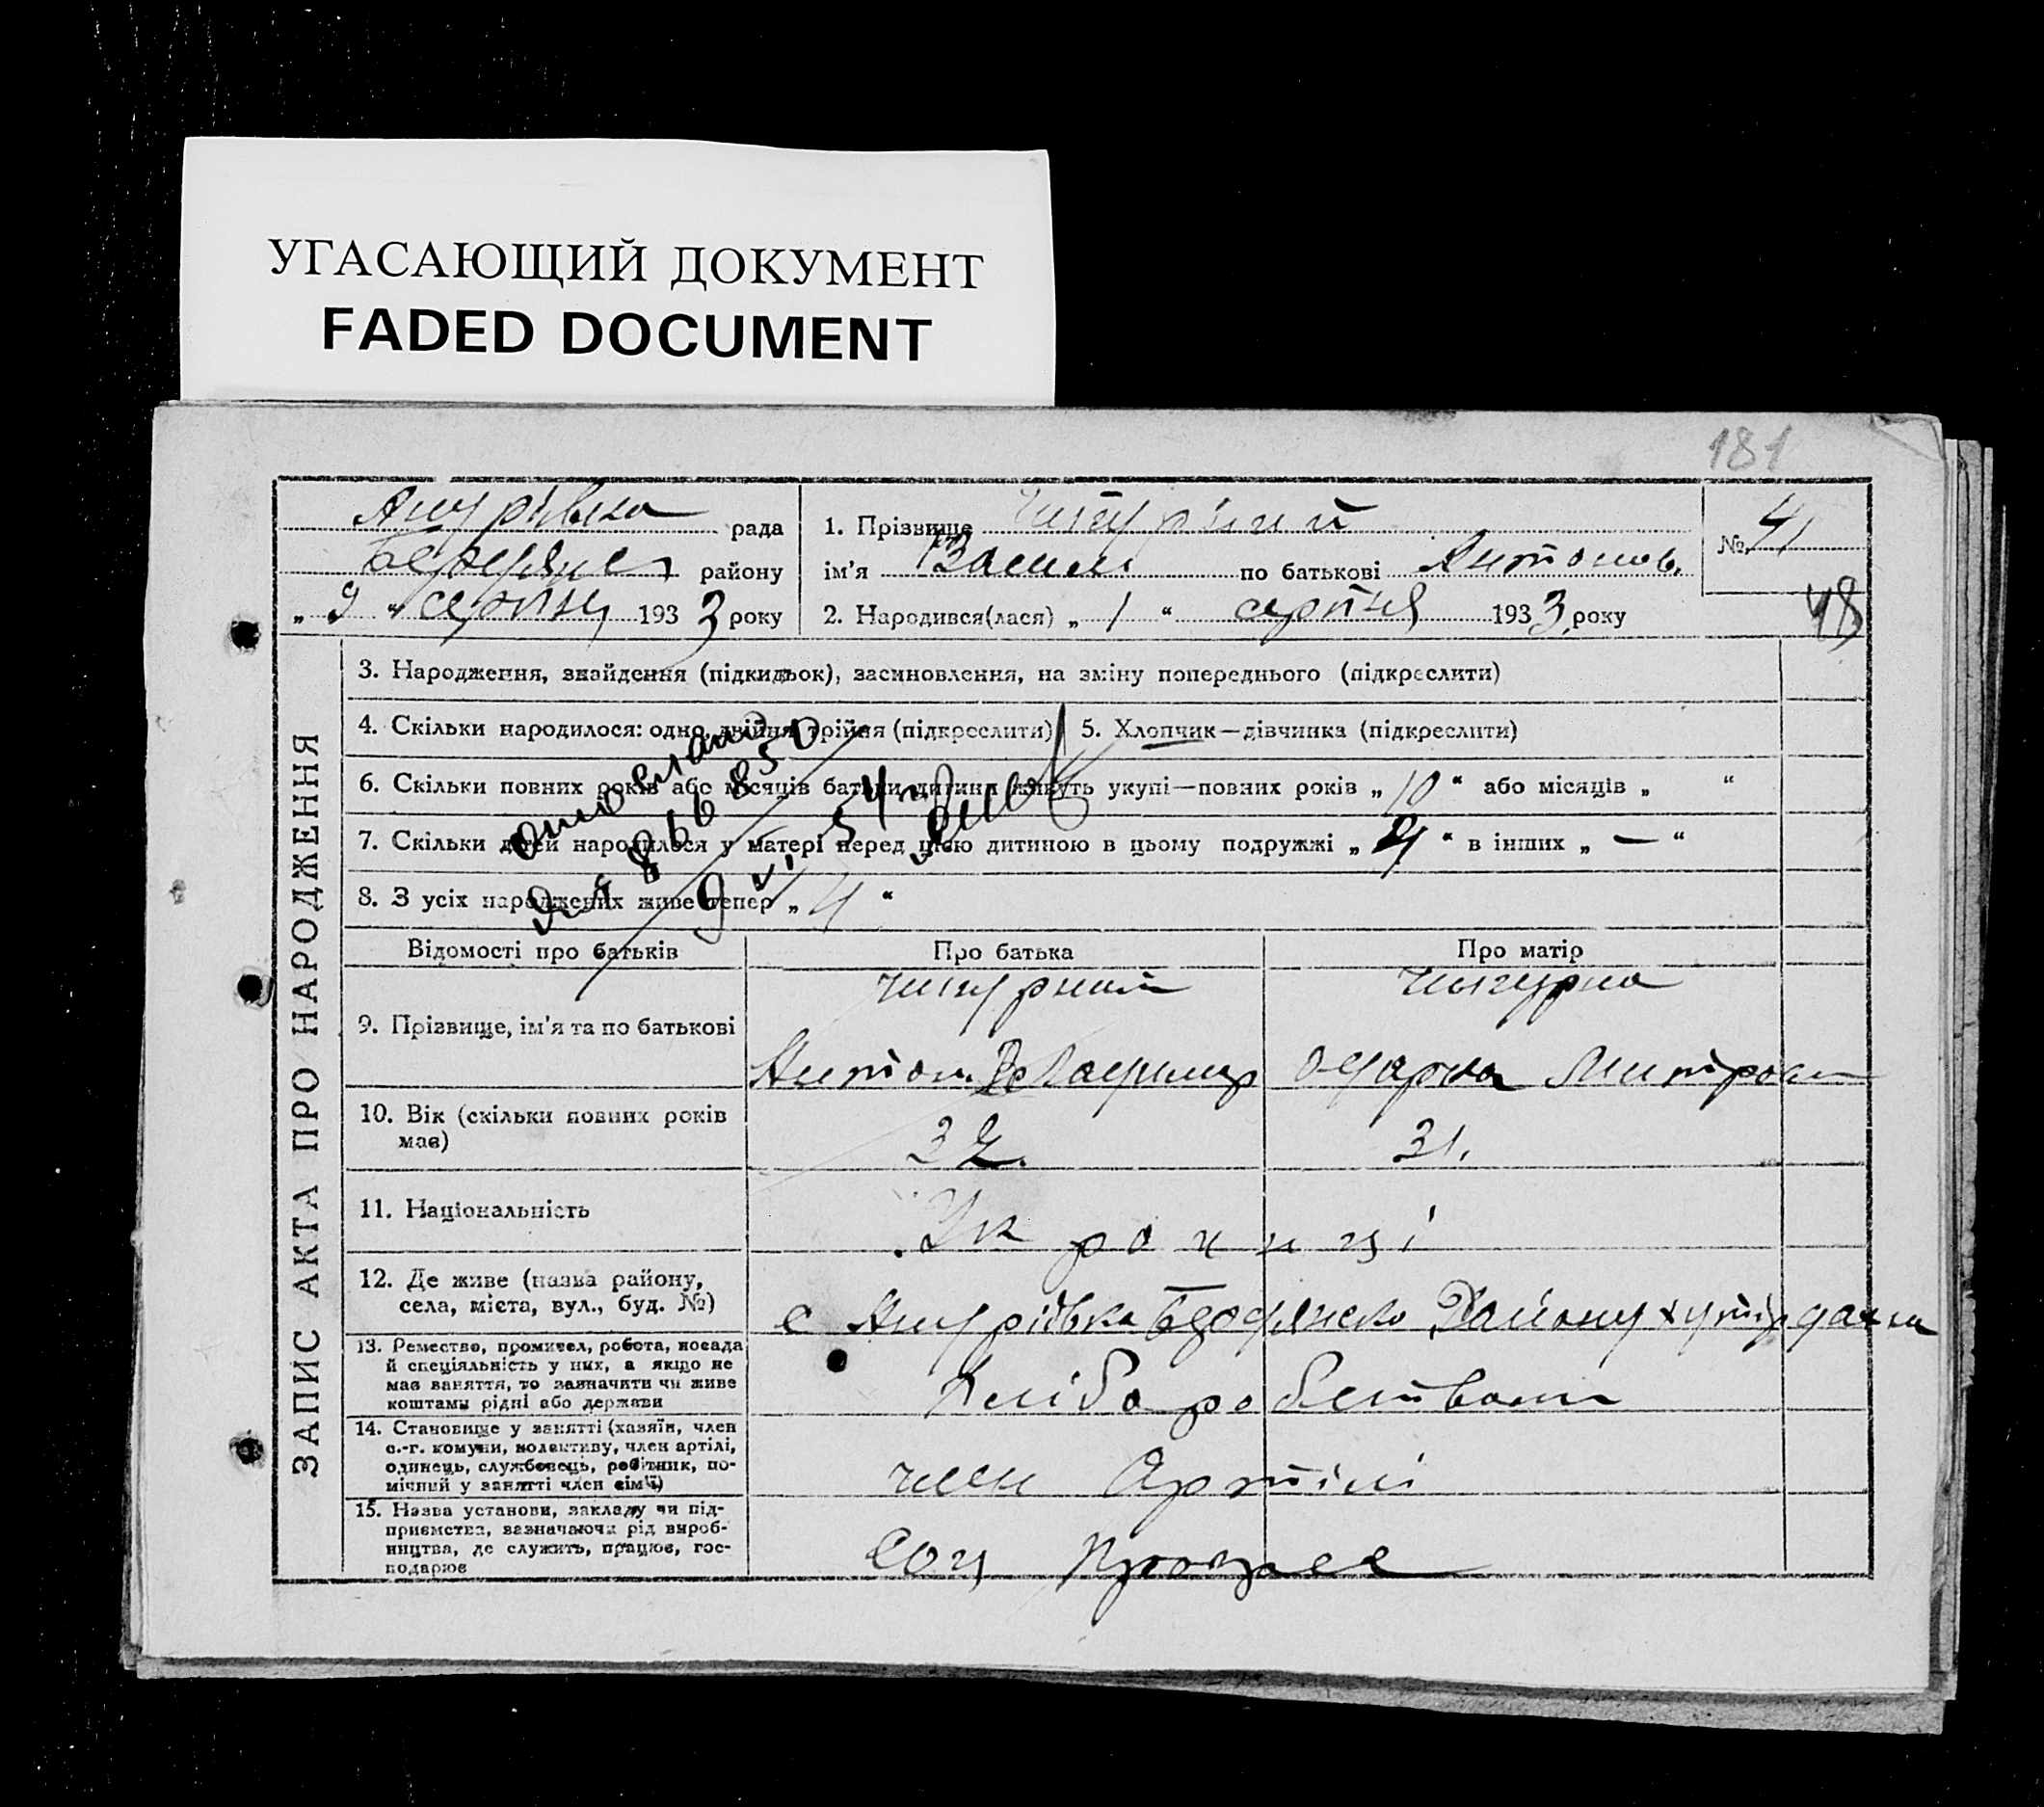 УГАСАЮЩИЙ ДОКУМЕНТ
FADED DOCUMENT
181
рада
1. Прізвище
№ 41
району
ім'я Василь по батькові Антонов.
„ 9 “ серпня 1933 року
2. Народився(лася) „ 1 “ серпня 1933 року
48
ЗАПИС АКТА ПРО НАРОДЖЕННЯ
3. Народження, знайдення (підкидьок), засиновлення, на зміну попереднього (підкреслити)
4. Скільки народилося: одно, двійня, трійня (підкреслити)
5. Хлопчик—дівчинка (підкреслити)
6. Скільки повних років або місяців батьки дитини живуть укупі—повних років „ 10 “ або місяців „ “
7. Скільки дітей народилося у матері перед цією дитиною в цьому подружжі „ 4 “ в інших „ — “
8. З усіх народжених живе тепер „ 4 “
Відомості про батьків
Про батька
Про матір
9. Прізвище, ім'я та по батькові
Антон Владимир
Одарка Митроф
10. Вік (скільки повних років
має)
32.
31.
11. Національність
Українці
12. Де живе (назва району,
села, міста, вул., буд. №)
с Району хутір
13. Ремество, промисел, робота, посада
й спеціяльність у них, а якщо не
має заняття, то зазначити чи живе
коштами рідні або держави
14. Становище у занятті (хазяїн, член
с.-г. комуни, колективу, член артілі,
одинець, службовець, робітник, по-
мічний у занятті член сім'ї)
член Артілі
15. Назва установи, закладу чи під-
приємства, зазначаючи рід вироб-
ництва, де служить, працює, гос-
подарює
Соц